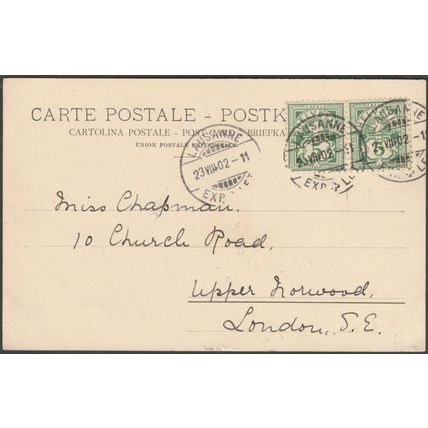 CARTE POSTALE - POSTK
CARTOLINA POSTALE - POST BRIEFKA
UNION POSTALE
LAUSANNE
23 VIII 02 - 11
EXP. LET
LAUSANNE
VIII 02
EXP.
LAUSA
02 - 1
5
Miss Chapman.
10 Church Road,
Upper Norwood,
London, S.E.